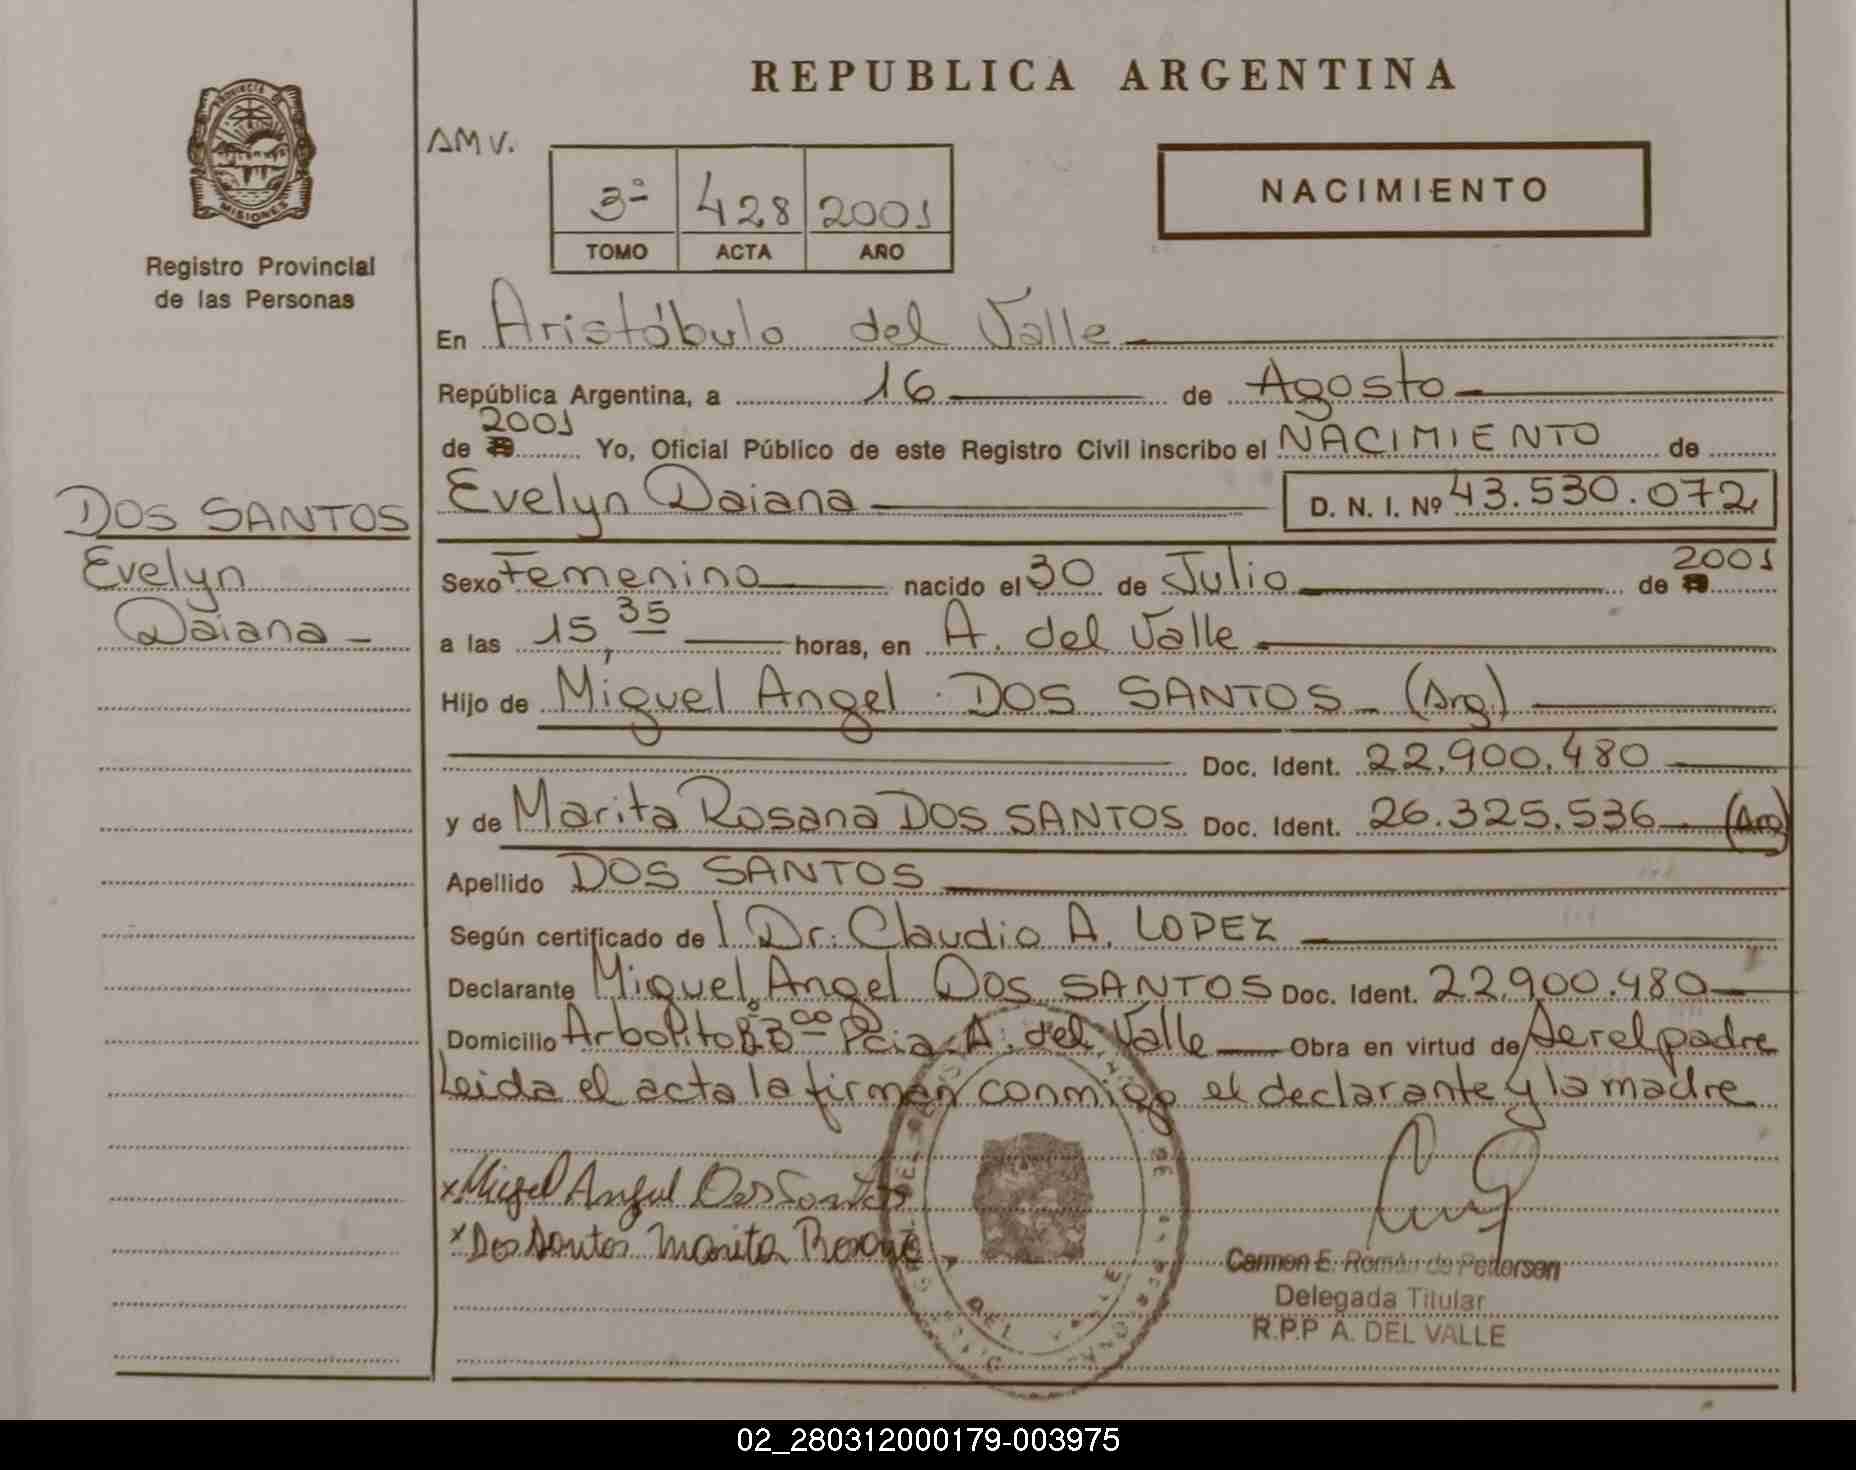 REPUBLICA ARGENTINA
PROVINCIA DE
MISIONES
Registro Provincial
de las Personas
AMV.
3º 428 2001
TOMO ACTA AÑO
NACIMIENTO
En Aristóbulo del Valle
República Argentina, a 16 de Agosto
de 2001 Yo, Oficial Público de este Registro Civil inscribo el NACIMIENTO de
Evelyn Daiana D. N. I. Nº 43.530.072
DOS SANTOS
Evelyn
Daiana
Sexo Femenino nacido el 30 de Julio de 2001
a las 15,35 horas, en A. del Valle
Hijo de Miguel Angel DOS SANTOS (Arg)
Doc. Ident. 22.900.480
y de Marita Rosana DOS SANTOS Doc. Ident. 26.325.536 (Arg)
Apellido DOS SANTOS
Según certificado de l Dr. Claudio A. LOPEZ
Declarante Miguel Angel DOS SANTOS Doc. Ident. 22.900.480
Domicilio Arbolito Pcia. A. del Valle Obra en virtud de ser el padre
Leida el acta la firman conmigo el declarante y la madre
x Migel Angel Dos Santos
x Dos Santos Marita Rosana
Carmen E. Román de Pettersen
Delegada Titular
R.P.P A. DEL VALLE
02_280312000179-003975